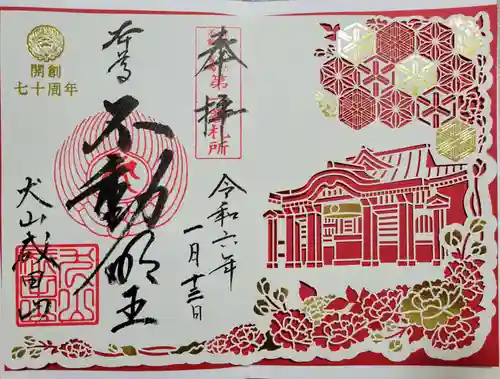 奉拝
令和六年
一月十三日
本尊
不動明王
犬山成田山
開創
七十周年